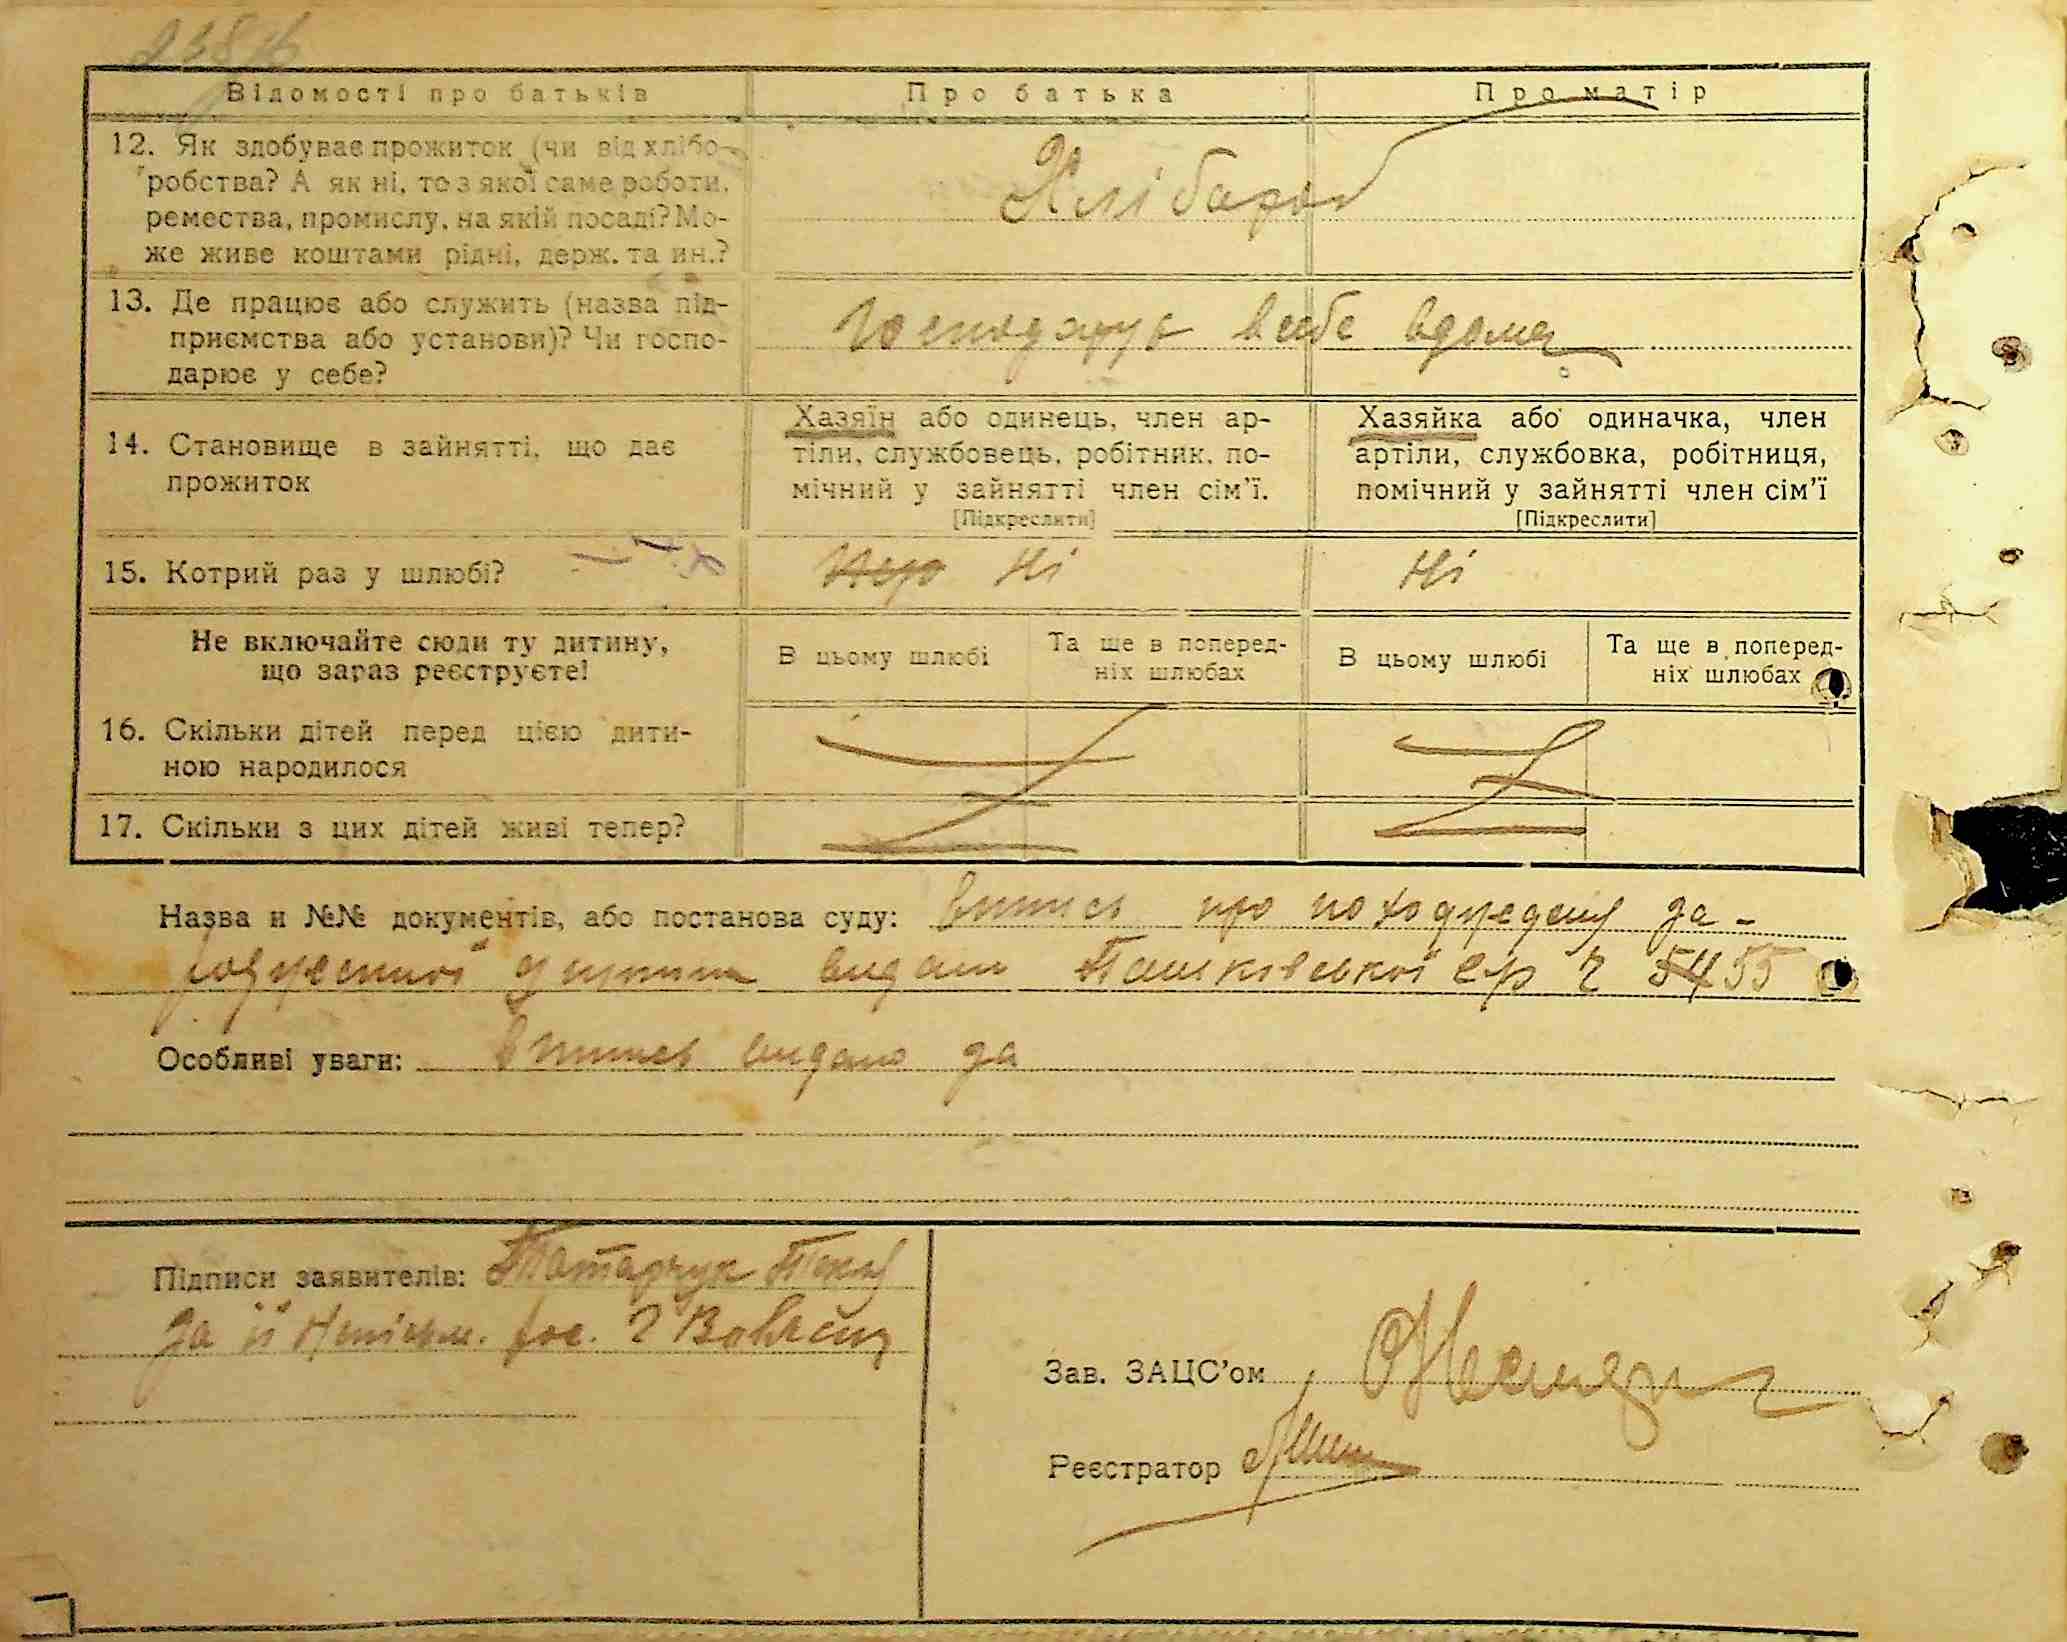 Відомості про батьків
Про батька
Про матір
12. Як здобуває прожиток (чи від хлібо-
робства? А як ні, то з якої саме роботи,
ремества, промислу, на якій посаді? Мо-
же живе коштами рідні, держ. та ин.?
Хлібороб
13. Де працює або служить (назва під-
приємства або установи)? Чи госпо-
дарює у себе?
Господарує в себе вдома
14. Становище в зайнятті, що дає
прожиток
Хазяїн або одинець, член ар-
тіли, службовець, робітник, по-
мічний у зайнятті член сім'ї.
[Підкреслити]
Хазяйка або одиначка, член
артіли, службовка, робітниця,
помічний у зайнятті член сім'ї
[Підкреслити]
15. Котрий раз у шлюбі?
Ні
Ні
Не включайте сюди ту дитину,
що зараз реєструєте!
В цьому шлюбі
Та ще в поперед-
ніх шлюбах
В цьому шлюбі
Та ще в поперед-
ніх шлюбах
16. Скільки дітей перед цією дити-
ною народилося
17. Скільки з цих дітей живі тепер?
Назва и №№ документів, або постанова суду: Випись про
видана 55
Особливі уваги: Випись видано
Підписи заявителів: Татарчук
за її
Зав. ЗАЦС'ом
Реєстратор